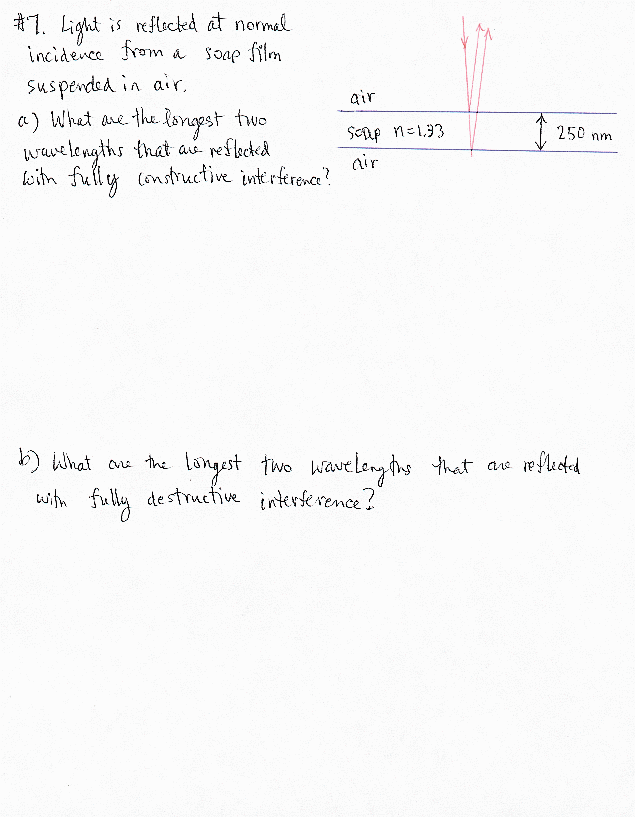 #7. Light is reflected at normal
incidence from a soap film
suspended in air.
a) What are the longest two
wavelengths that are reflected
with fully constructive interference?
air
soap n=1.33
250 nm
air
b) What are the longest two wavelengths that are reflected
with fully destructive interference?